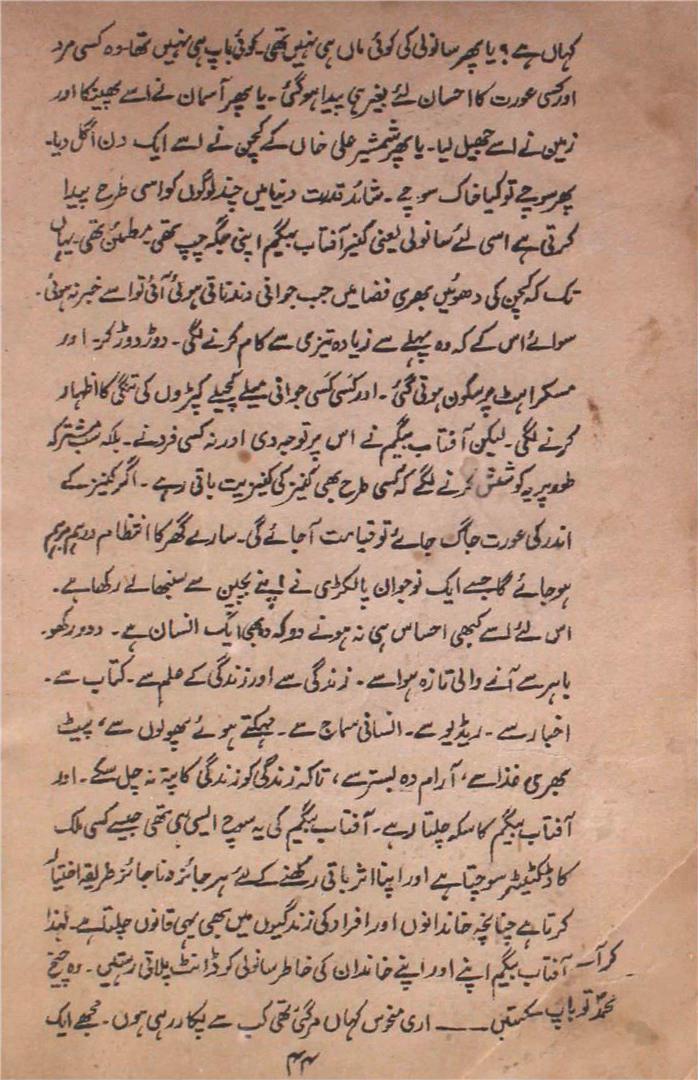 کہاں ہے ؟ یا پھر سانولی کی کوئی ماں ہی نہیں تھی۔ کوئی باپ ہی نہیں تھا۔ وہ کسی مرد
اور کسی عورت کا احسان لئے بغیر ہی پیدا ہوگئی۔ یا پھر آسمان نے اسے پھینکا اور
زمین نے اسے جھیل لیا۔ یا پھر شمشیر علی خاں کے کچن نے اسے ایک دن اگل دیا۔
پھر سوچے تو کیا خاک سوچے۔ شائد قدرت دنیا میں چند لوگوں کو اسی طرح پیدا
کرتی ہے اسی لئے سانولی یعنی کنیز آفتاب بیگم اپنی جگہ چپ تھی۔ مطمئن تھی۔ یہاں
تک کہ کچن کی دھوئیں بھری فضا میں جب جوانی دندناتی ہوئی آئی تو اسے خبر نہ ہوئی۔
سوائے اس کے کہ وہ پہلے سے زیادہ تیزی سے کام کرنے لگی۔ دوڑ دوڑ کر۔ اور
مسکراہٹ پرسکون ہوتی گئی۔ اور کَسی کَسی جوانی میلے کچیلے کپڑوں کی تنگی کا اظہار
کرنے لگی۔ لیکن آفتاب بیگم نے اس پر توجہ دی اور نہ کسی فرد نے۔ بلکہ سب مشترکہ
طور پر یہ کوشش کرنے لگے کہ کسی طرح بھی کنیز کی کنیزیت باقی رہے۔ اگر کنیز کے
اندر کی عورت جاگ جائے تو قیامت آجائے گی۔ سارے گھر کا انتظام درہم برہم
ہو جائے گا جسے ایک نوجوان پا لکڑی نے اپنے بچپن سے سنبھالے رکھا ہے۔
اس لئے اسے کبھی احساس ہی نہ ہونے دو کہ وہ بھی ایک انسان ہے۔ دور رکھو۔
باہر سے آنے والی تازہ ہوا سے۔ زندگی سے اور زندگی کے علم سے۔ کتاب سے۔
اخبار سے۔ ریڈیو سے۔ انسانی سماج سے۔ مہکتے ہوئے پھولوں سے، پیٹ
بھری غذا سے، آرام دہ بستر سے، تاکہ زندگی کو زندگی کا پتہ نہ چل سکے۔ اور
آفتاب بیگم کا سکہ چلتا رہے۔ آفتاب بیگم کی یہ سوچ ایسی ہی تھی جیسے کسی ملک
کا ڈکٹیٹر سوچتا ہے اور اپنا اثر باقی رکھنے کے لئے ہر جائز و ناجائز طریقہ اختیار
کرتا ہے چنانچہ خاندانوں اور افراد کی زندگیوں میں بھی یہی قانون چلتا ہے۔ لہٰذا
آفتاب بیگم اپنے اور اپنے خاندان کی خاطر سانولی کو ڈانٹ پلاتی رہتیں۔ وہ چیخ
کر آسے
تو باپ سکتیں ــــ اری منحوس کہاں مرگئی تھی کب سے پکار رہی ہوں۔ مجھے ایک
۴۴